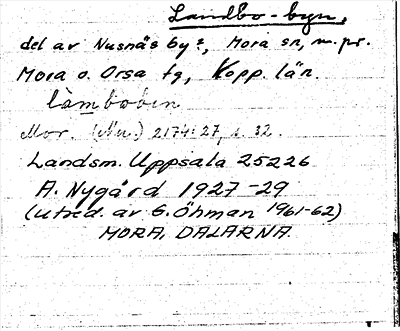 Landbo-byn,
del av Nusnäs by?, Mora sn, m. pr.
Mora o. Orsa tg, Kopp. län.
làmbobin
Mor. (Nu.) 2174:27, s. 32.
Landsm. Uppsala 25226
A. Nygård 1927-29
(utred. av G. Öhman 1961-62)
MORA, DALARNA.